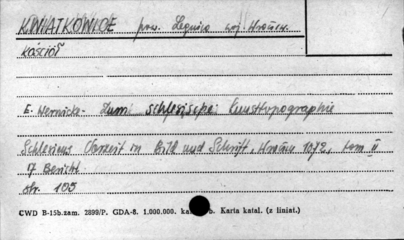 KWIATKOWICE pow. Legnica woj. Wrocław.
Kościół
E. Wernicke - Zum schlesischen Kunsttopographie
Schlesiens Vorzeit in Bild und Schrift, Wrocław 1872, tom II
17 Bericht
str. 105
CWD B-15b.zam. 2899/P. GDA-8. 1.000.000. Karta katal. (z liniat.)